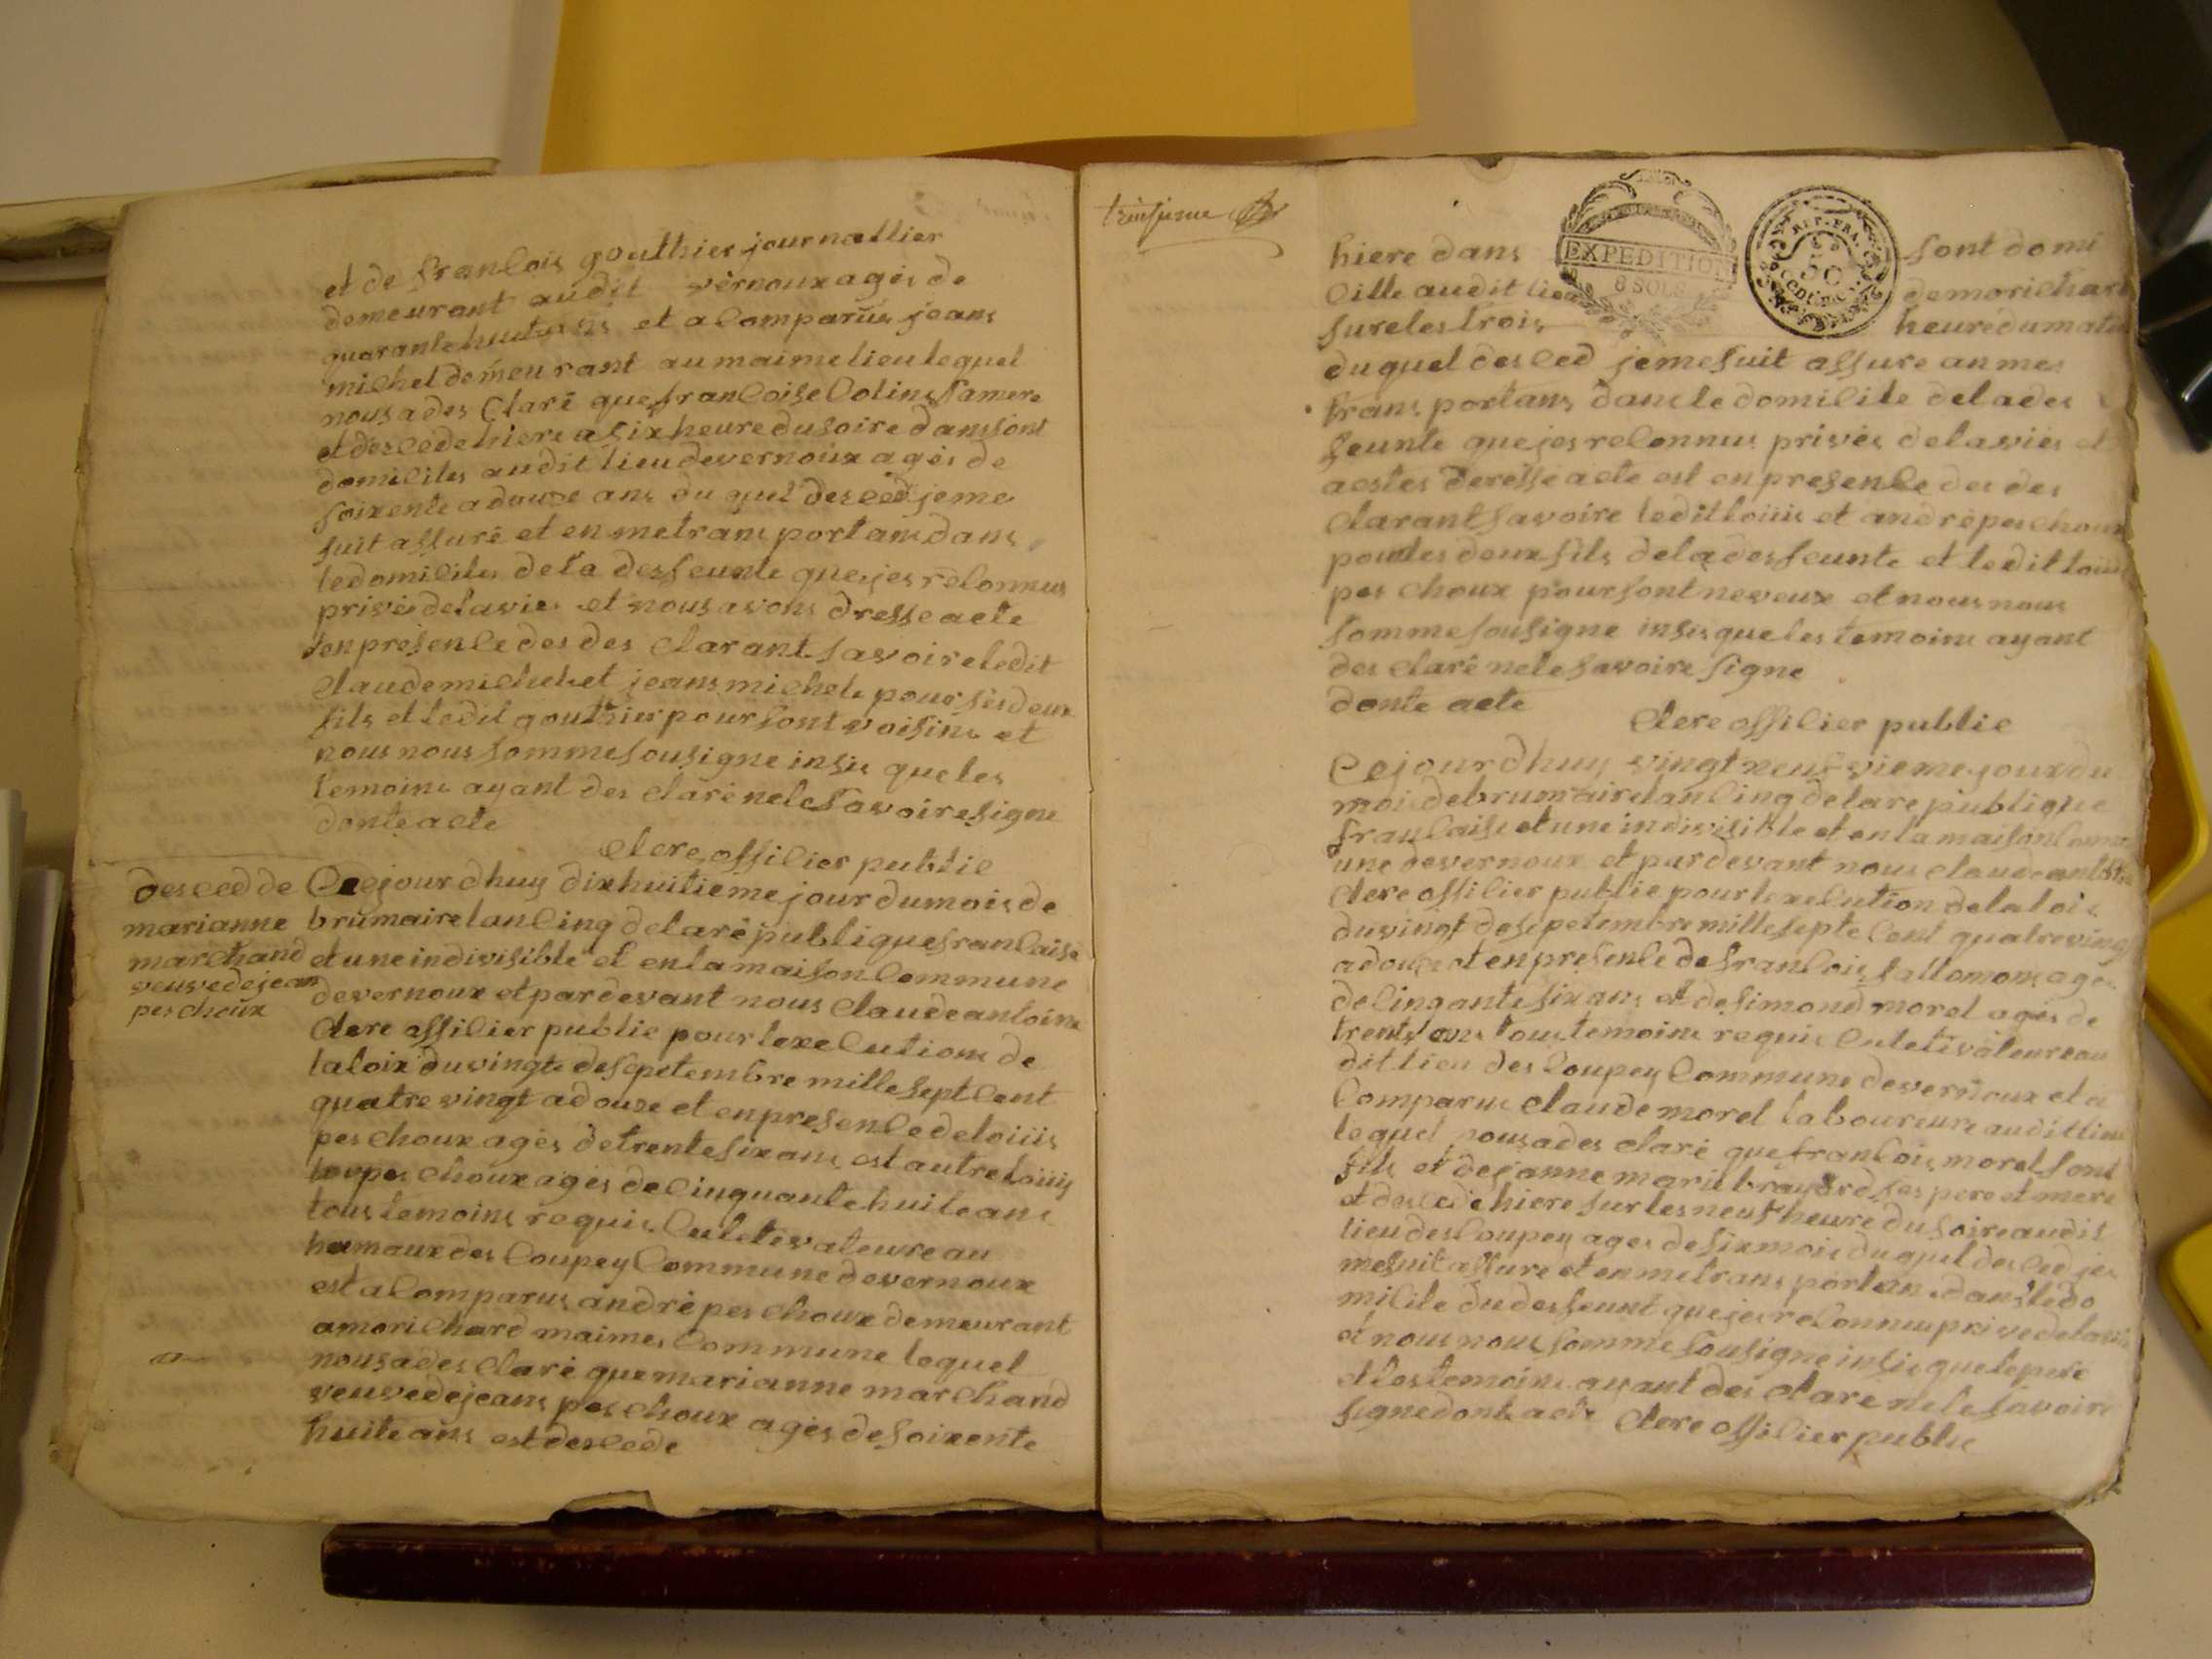 et de francois gouthier journallier
demeurant audit vernoux agés de
quarante huit ans et a comparüs jeans
michel demeurant au maime lieu lequel
nous a des claré que francoise Colins sa mere
et des cede hiere a six heure du soire dans sont
domicilles audit lieu de vernoux agés de
soixente a douze ans du quel des ced je me
suit assuré et en me trans portans dans
le domicilles de la des feunte que jes reconnus
privés de la vies et nous avons dresse acte
en presence des des clarant savoire ledit
Claude michel et jeans michel pour ses deux
fils et ledit gouthier pour sont voisins et
nous nous somme sousigne insis que les
temoins ayant des claré ne le savoire signe
donte acte
Clere officier public
des ced de
marianne
marchand
veuve de jean
pes choux
Ce jour dhuy dix huitieme jour du mois de
brumaire lan cinq de la republique francaise
et une indivisible et en la maison Commune
de vernoux et par devant nous Claude antoine
Clere officier public pour lexecutions de
la loix du vingt de sepetembre mille sept cent
quatre vingt a douze et en presence de loiiis
pes choux agés de trente six ans est autre loiiis
pes choux agés de cinquante huite ans
tous temoins requis Cultivateure au
hamaux des Coupey Commune de vernoux
est a Comparus andré pes choux demeurant
a morichard maime Commune lequel
nous a des claré que marianne marchand
veuve de jeans pes choux agés de soixente
huite ans est des cede
hiere dans sont domi
cille audit lieu de morichard
sure les trois heure du matin
EXPEDITION
6 SOLS
REP. FRA.
50
CENTIMES
du quel des ced je me suit assure an me
trans portans dans le domicile de la des
feunte que jes reconnus privés de la viés et
acstes deresse acte est en presence des des
clarant savoire ledit loiiis et andré pes choux
pour les deux fils de la des feunte et ledit loiiis
pes choux pour sont neveux et nous nous
somme sousigne insis que les temoins ayant
des claré ne le savoire signe
donte acte
Clere officier public
Ce jour dhuy vingt neuf vieme jour du
mois de brumaire lan cinq de la re publique
francaise et une indivisible et en la maison comm
une de vernoux et par devant nous claude antoine
Clere officier public pour lexecution de la lois
du vingt de sepetembre mille septe cent quatre vingt
a douze et en presence de francois lallemons agés
de cinqante six ans et de simond morel agés de
trente ans tous temoins requis Culetivateure au
dit lieu des Coupey Commune de vernoux et a
Comparus claude morel laboureure audit lieu
lequel nous a des claré que francois morel sont
fils et de janne marie brayard ses pere et mere
et des cede hiere sur les neuf heure du soire audit
lieu des Coupey ages de six mois du quel des ced je
me suit assure et en me trans portan dans le do
micile du des feunt que jes reconnus prive de la vie
et nous nous somme sousigne insis que le pere
et les temoins ayant des clare ne le savoire
signe donte acte Clere officier public